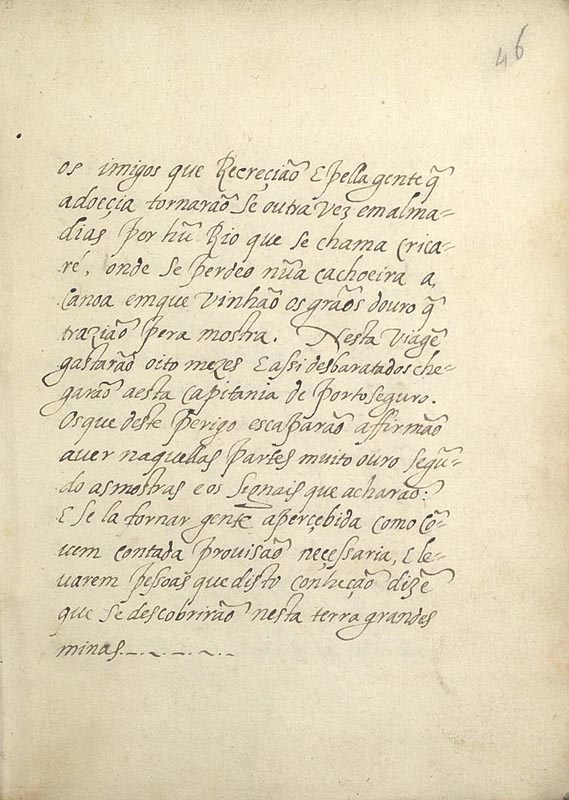 46
os imigos que Recreçião E pella gente q̃
adoeçia tornarão se outra vez em alma-
dias per hũ Rio que se chama Crica-
ré, onde se perdeo nũa cachoeira a
Canoa em que vinhão os grãos douro q̃
trazião pera mostra. Nesta viagẽ
gastarão oito mezes E assi desbaratados che-
garão a esta Capitania de Porto seguro.
Os que deste perigo escaparão affirmão
aver naquellas partes muito ouro segũ-
do as mostras e os Sinais que acharão:
E se la tornar gente aperçebida como cõ-
vem com toda provisão neçessaria, E le-
varem pessoas que disto conheção dizẽ
que se descobrirão nesta terra grandes
minas.